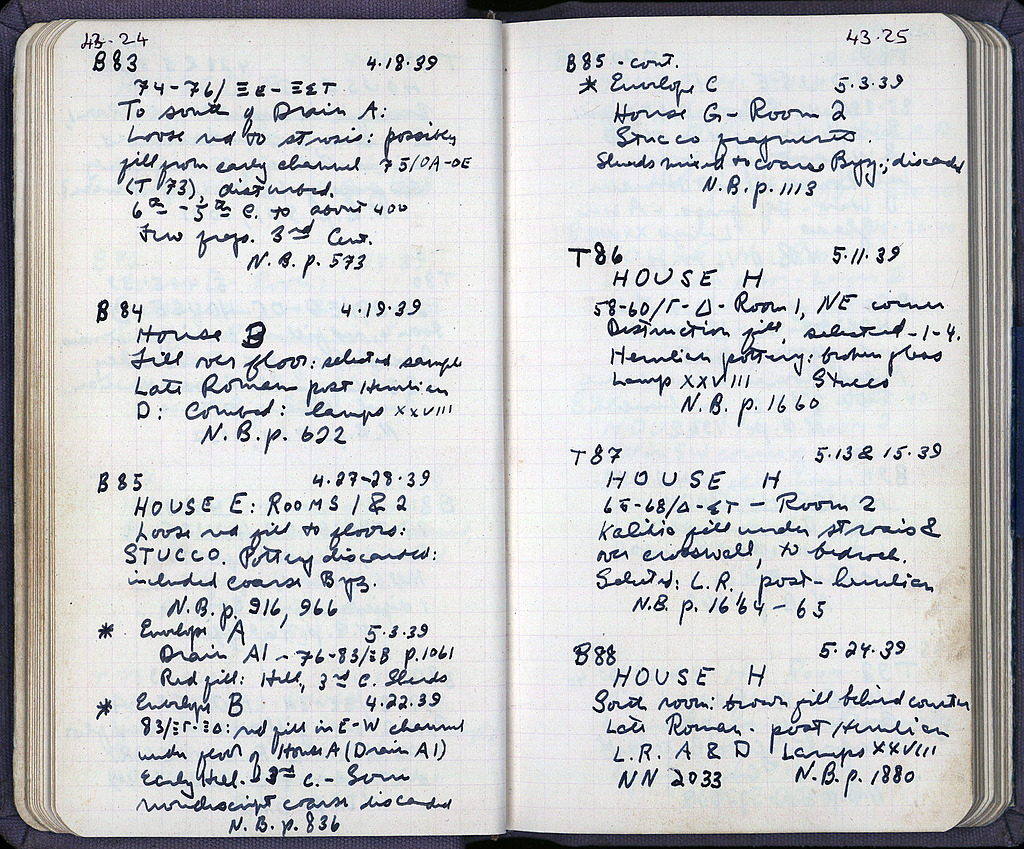 43-24
B83 4.18.39
74-76/ΞΕ-ΞΣΤ
To south of Drain A:
Loose red to strosis: possibly
fill from early channel 75/ΟΑ-ΟΕ
(T 73), disturbed.
6th - 5th C. to about 400
Few frags. 3rd Cent.
N.B. p. 573
B 84 4.19.39
House B
Fill over floor: selected sample
Late Roman post Herulian
D: Combed: lamps XXVIII
N.B. p. 622
B85 4.27-28.39
HOUSE E: ROOMS 1 & 2
Loose red fill to floors:
STUCCO. Pottery discarded:
included coarse Byz.
N.B. p. 916, 966
* Envelope A 5.3.39
Drain A1 - 76-83/ΞΒ p.1061
Red fill: Hell, 3rd C. Sherds
* Envelope B 4.22.39
83/ΞΓ-ΞΔ: red fill in E-W channel
under floor of House A (Drain A1)
Early Hell. 3rd C. - Some
nondescript coarse discarded
N.B. p. 836
43-25
B85 - cont.
* Envelope C 5.3.39
House G - Room 2
Stucco fragments.
Sherds mixed to coarse Byz; discarded
N.B. p. 1113
T86 5.11.39
HOUSE H
58-60/Γ-Δ - Room 1, NE corner
Destruction fill, selected - 1-4.
Herulian pottery: broken glass
Lamps XXVIII Stucco
N.B. p. 1660
T87 5.13 & 15.39
HOUSE H
65-68/Δ-ΣΤ - Room 2
Kalikio fill under strosis 2
over crosswall, to bedrock.
Selected: L.R. post-herulian
N.B. p. 1664-65
B88 5.24.39
HOUSE H
South room: brown fill behind counter
Late Roman - post Herulian
L.R. A & D Lamps XXVIII
NN 2033 N.B. p. 1880